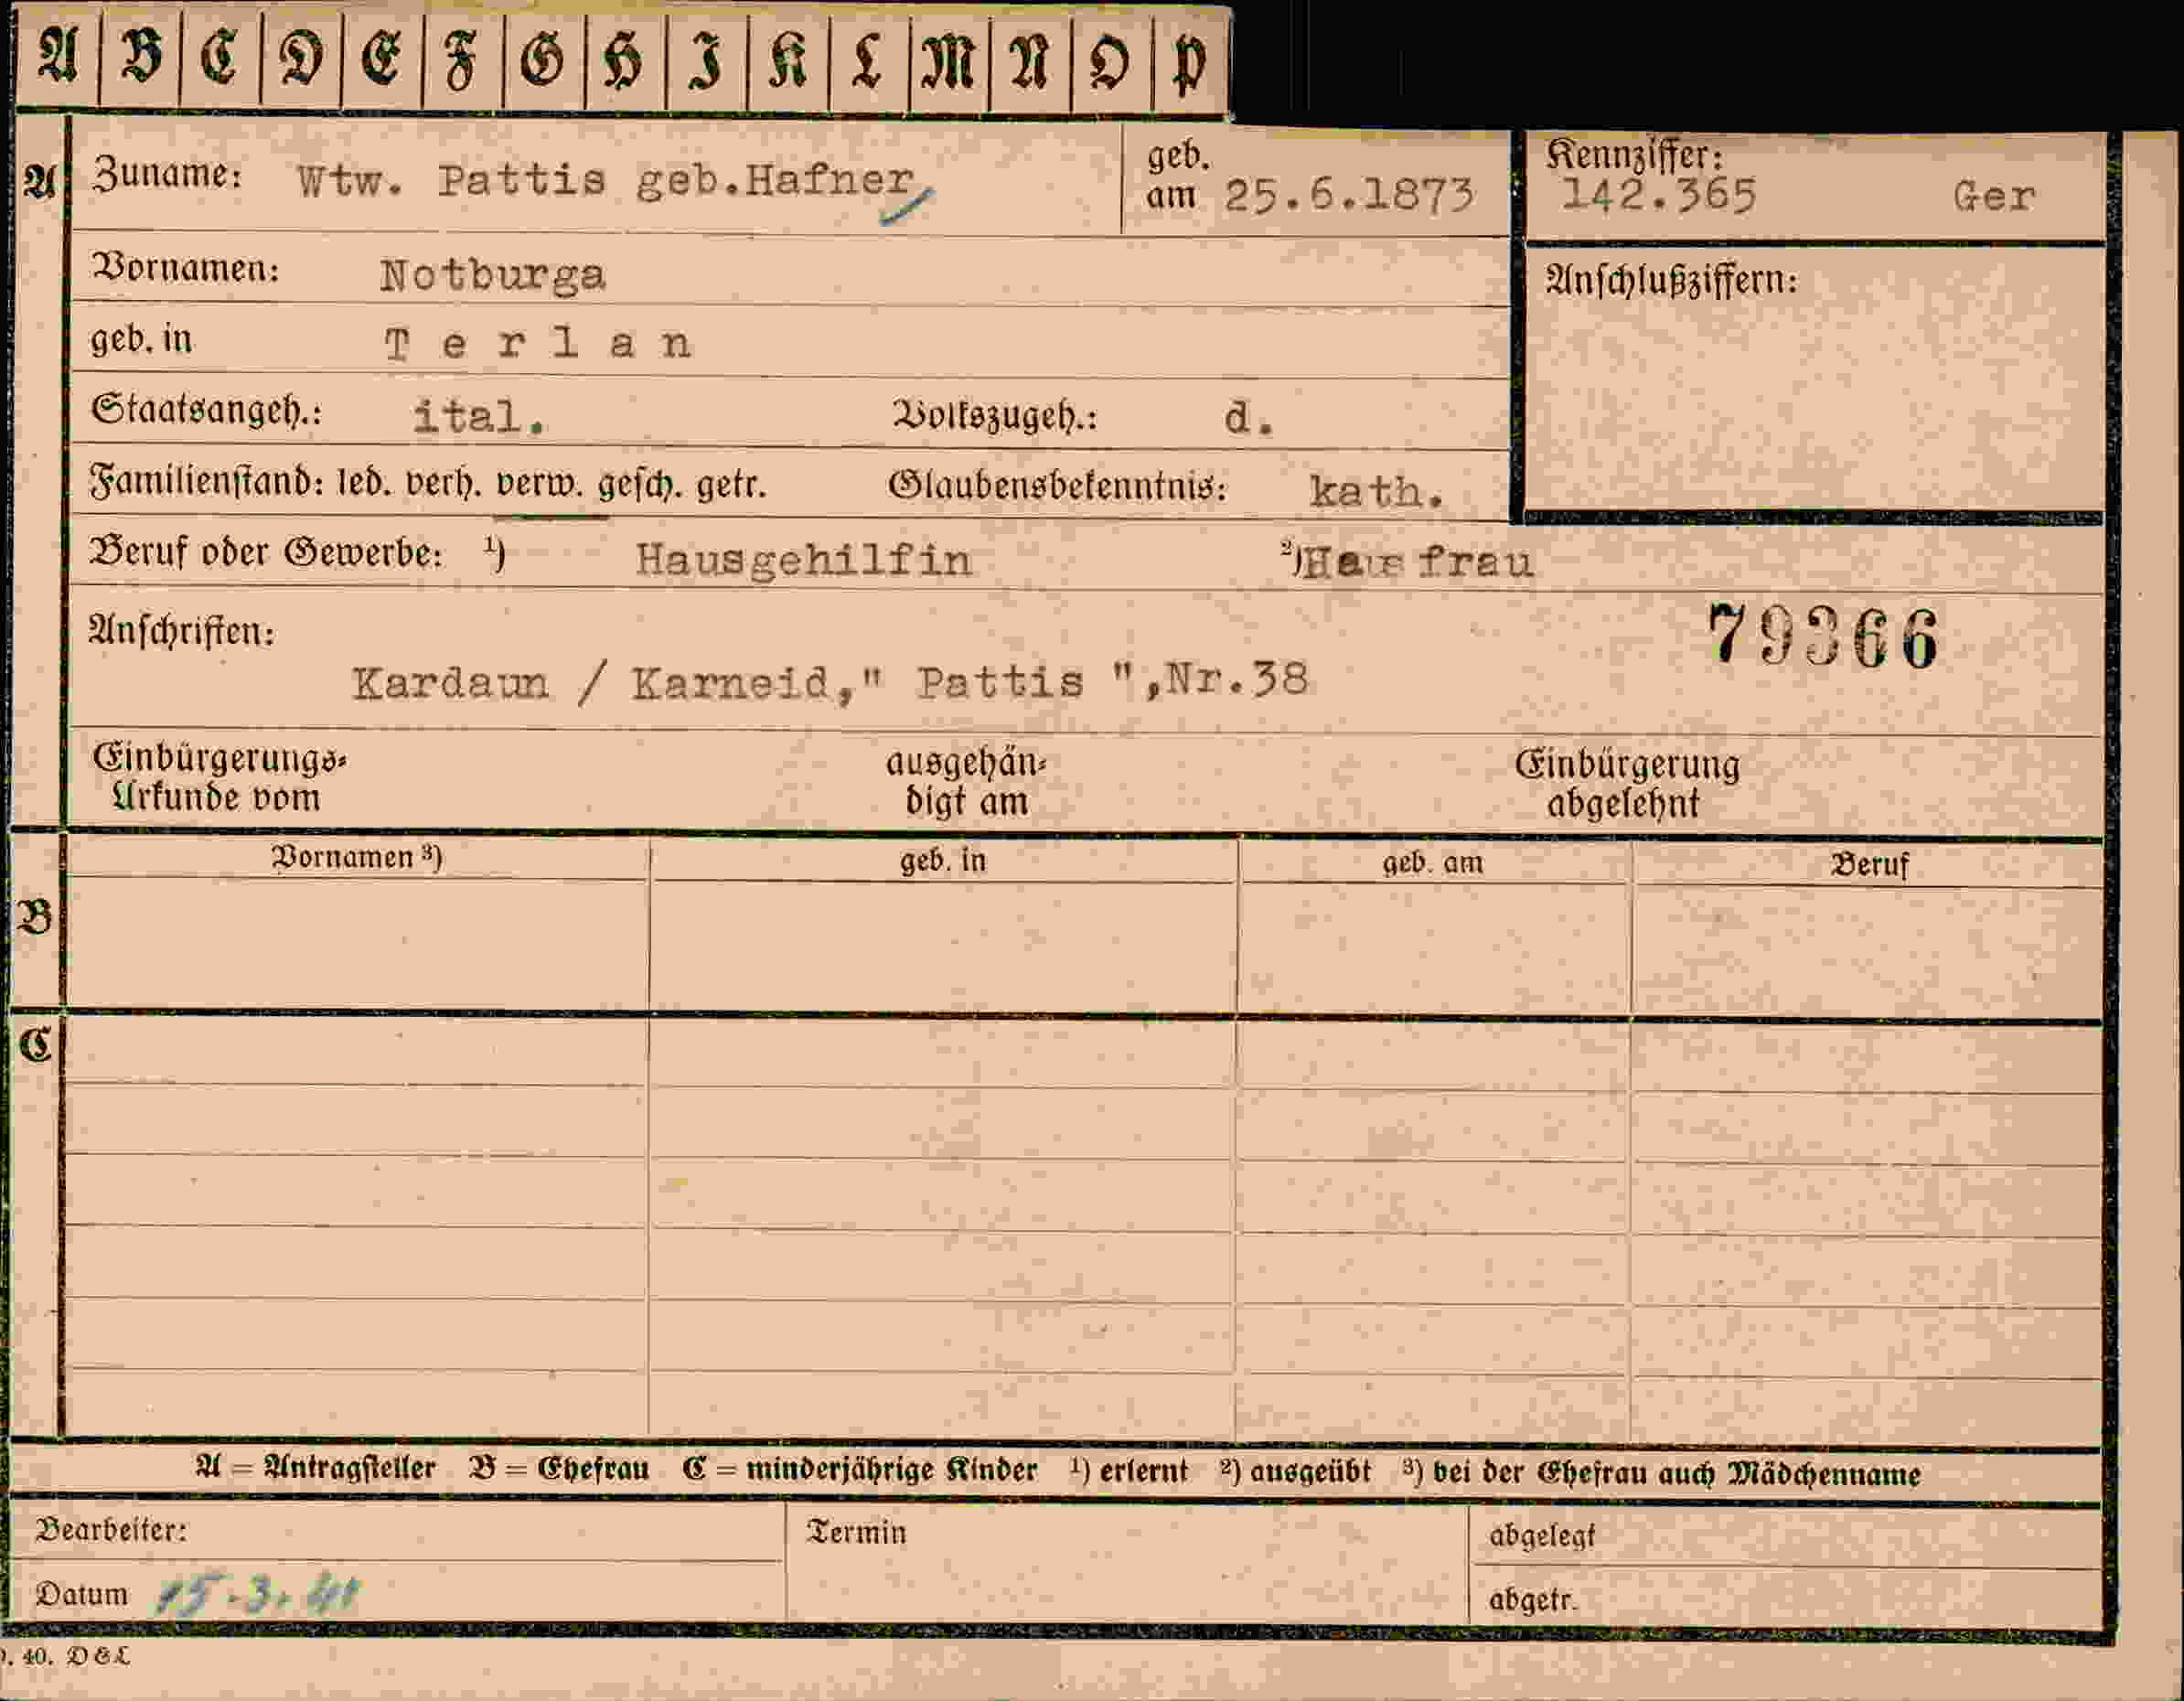 A B C D E F G H I K L M N O P
A Zuname: Wtw. Pattis geb.Hafner geb. am 25.6.1873 Kennziffer: 142.365 Ger
Vornamen: Notburga Anschlußziffern:
geb. in Terlan
Staatsangeh.: ital. Volkszugeh.: d.
Familienstand: led. verh. verw. gesch. getr. Glaubensbekenntnis: kath.
Beruf oder Gewerbe: 1) Hausgehilfin 2) Hausfrau
Anschriften: 79366
Kardaun / Karneid," Pattis ",Nr.38
Einbürgerungs- ausgehän- Einbürgerung
Urkunde vom digt am abgelehnt
Vornamen 3) geb. in geb. am Beruf
B
C
A = Antragsteller B = Ehefrau C = minderjährige Kinder 1) erlernt 2) ausgeübt 3) bei der Ehefrau auch Mädchenname
Bearbeiter: Termin abgelegt
Datum 15.3.41 abgetr.
40. D & L